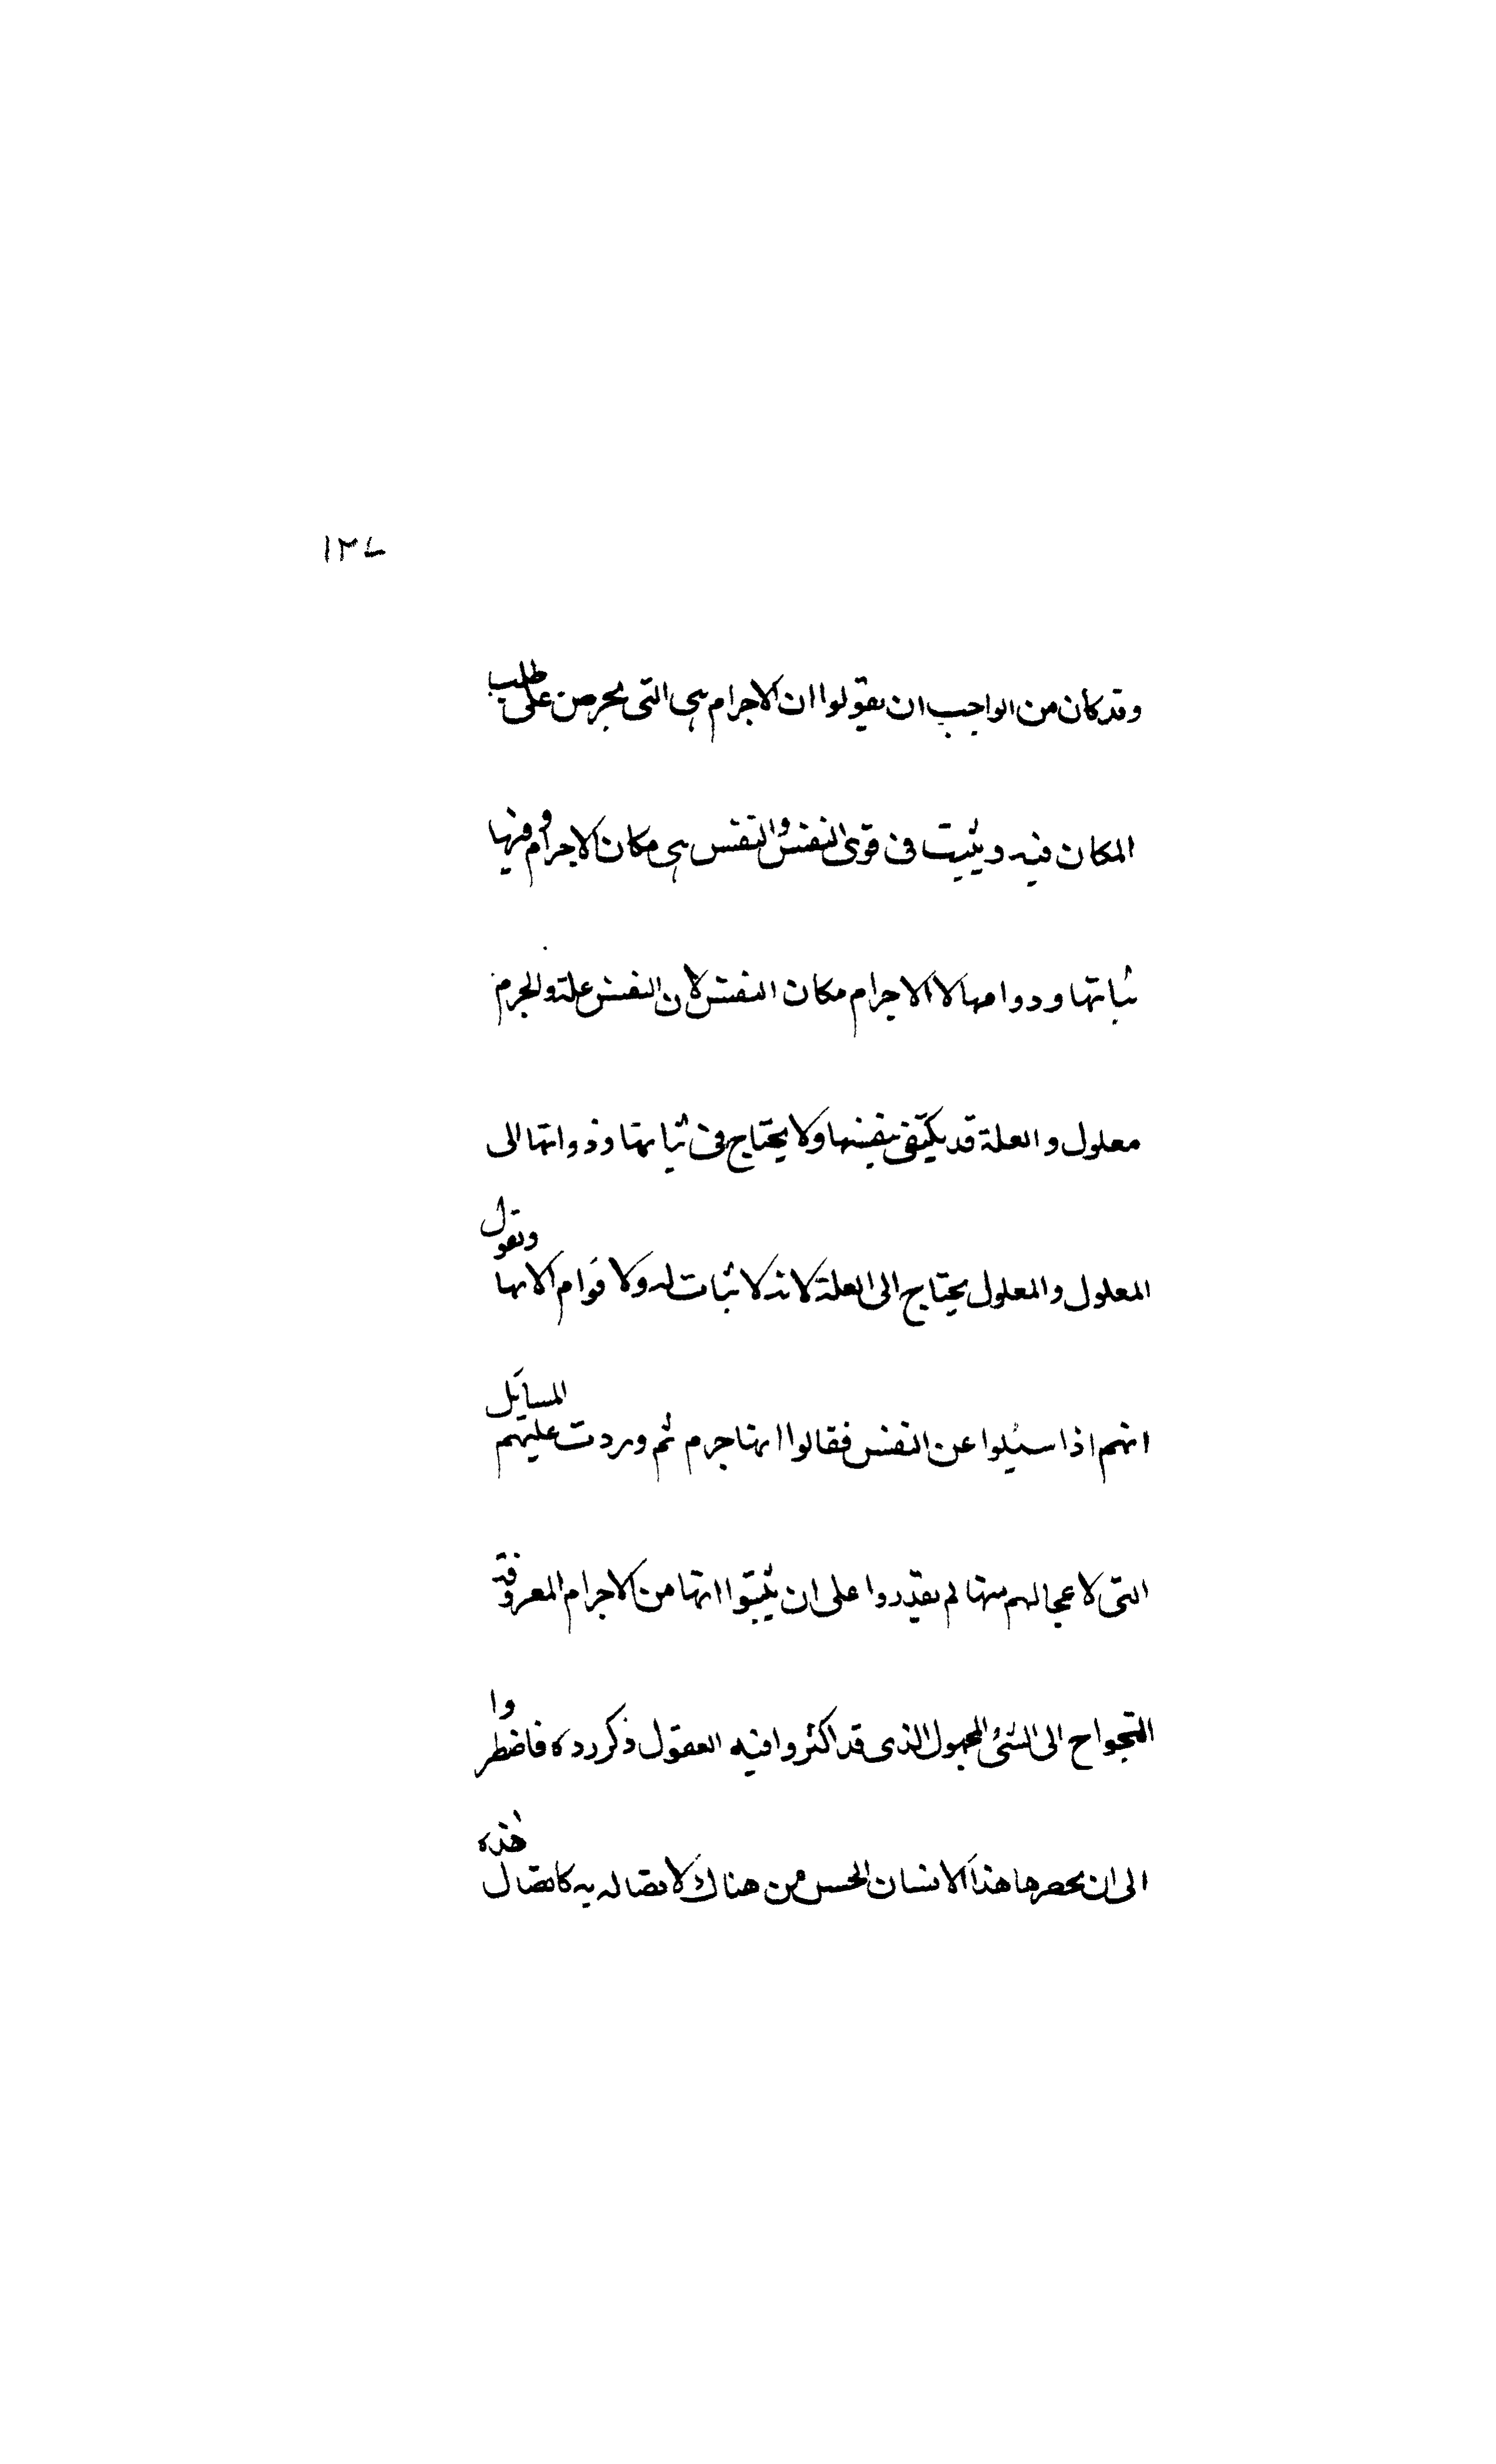 ١٣٧
وقد كان من الواجب ان يقولوا ان الاجرام هى التى يحرص على طلب
المكان فيه ويثبت فى قوى النفس والنفس هى مكان الاجرام وفيها
ثباتها ودوامها لا الاجرام مكان النفس لان النفس علة والجرم
معلول والعلة قد يكتفى بنفسها ولا يحتاج فى ثباتها وذواتها الى
المعلول والمعلول يحتاج الى العلة لانه لا ثبات له ولا قوام الا بها ونقول
انهم اذا سئلوا عن النفس فقالوا انها جرم ثم وردت عليهم المسائل
التى لا مجالهم منها لم يقدروا على ان يثبتوا انها من الاجرام المعروفة
التجواح الى الشئ المجهول الذى قد اكثروا فيه العقول ذكر رده فاضطروا
الى ان هذا الانسان الحس من هناك لاتصاله به كاتصال هذه